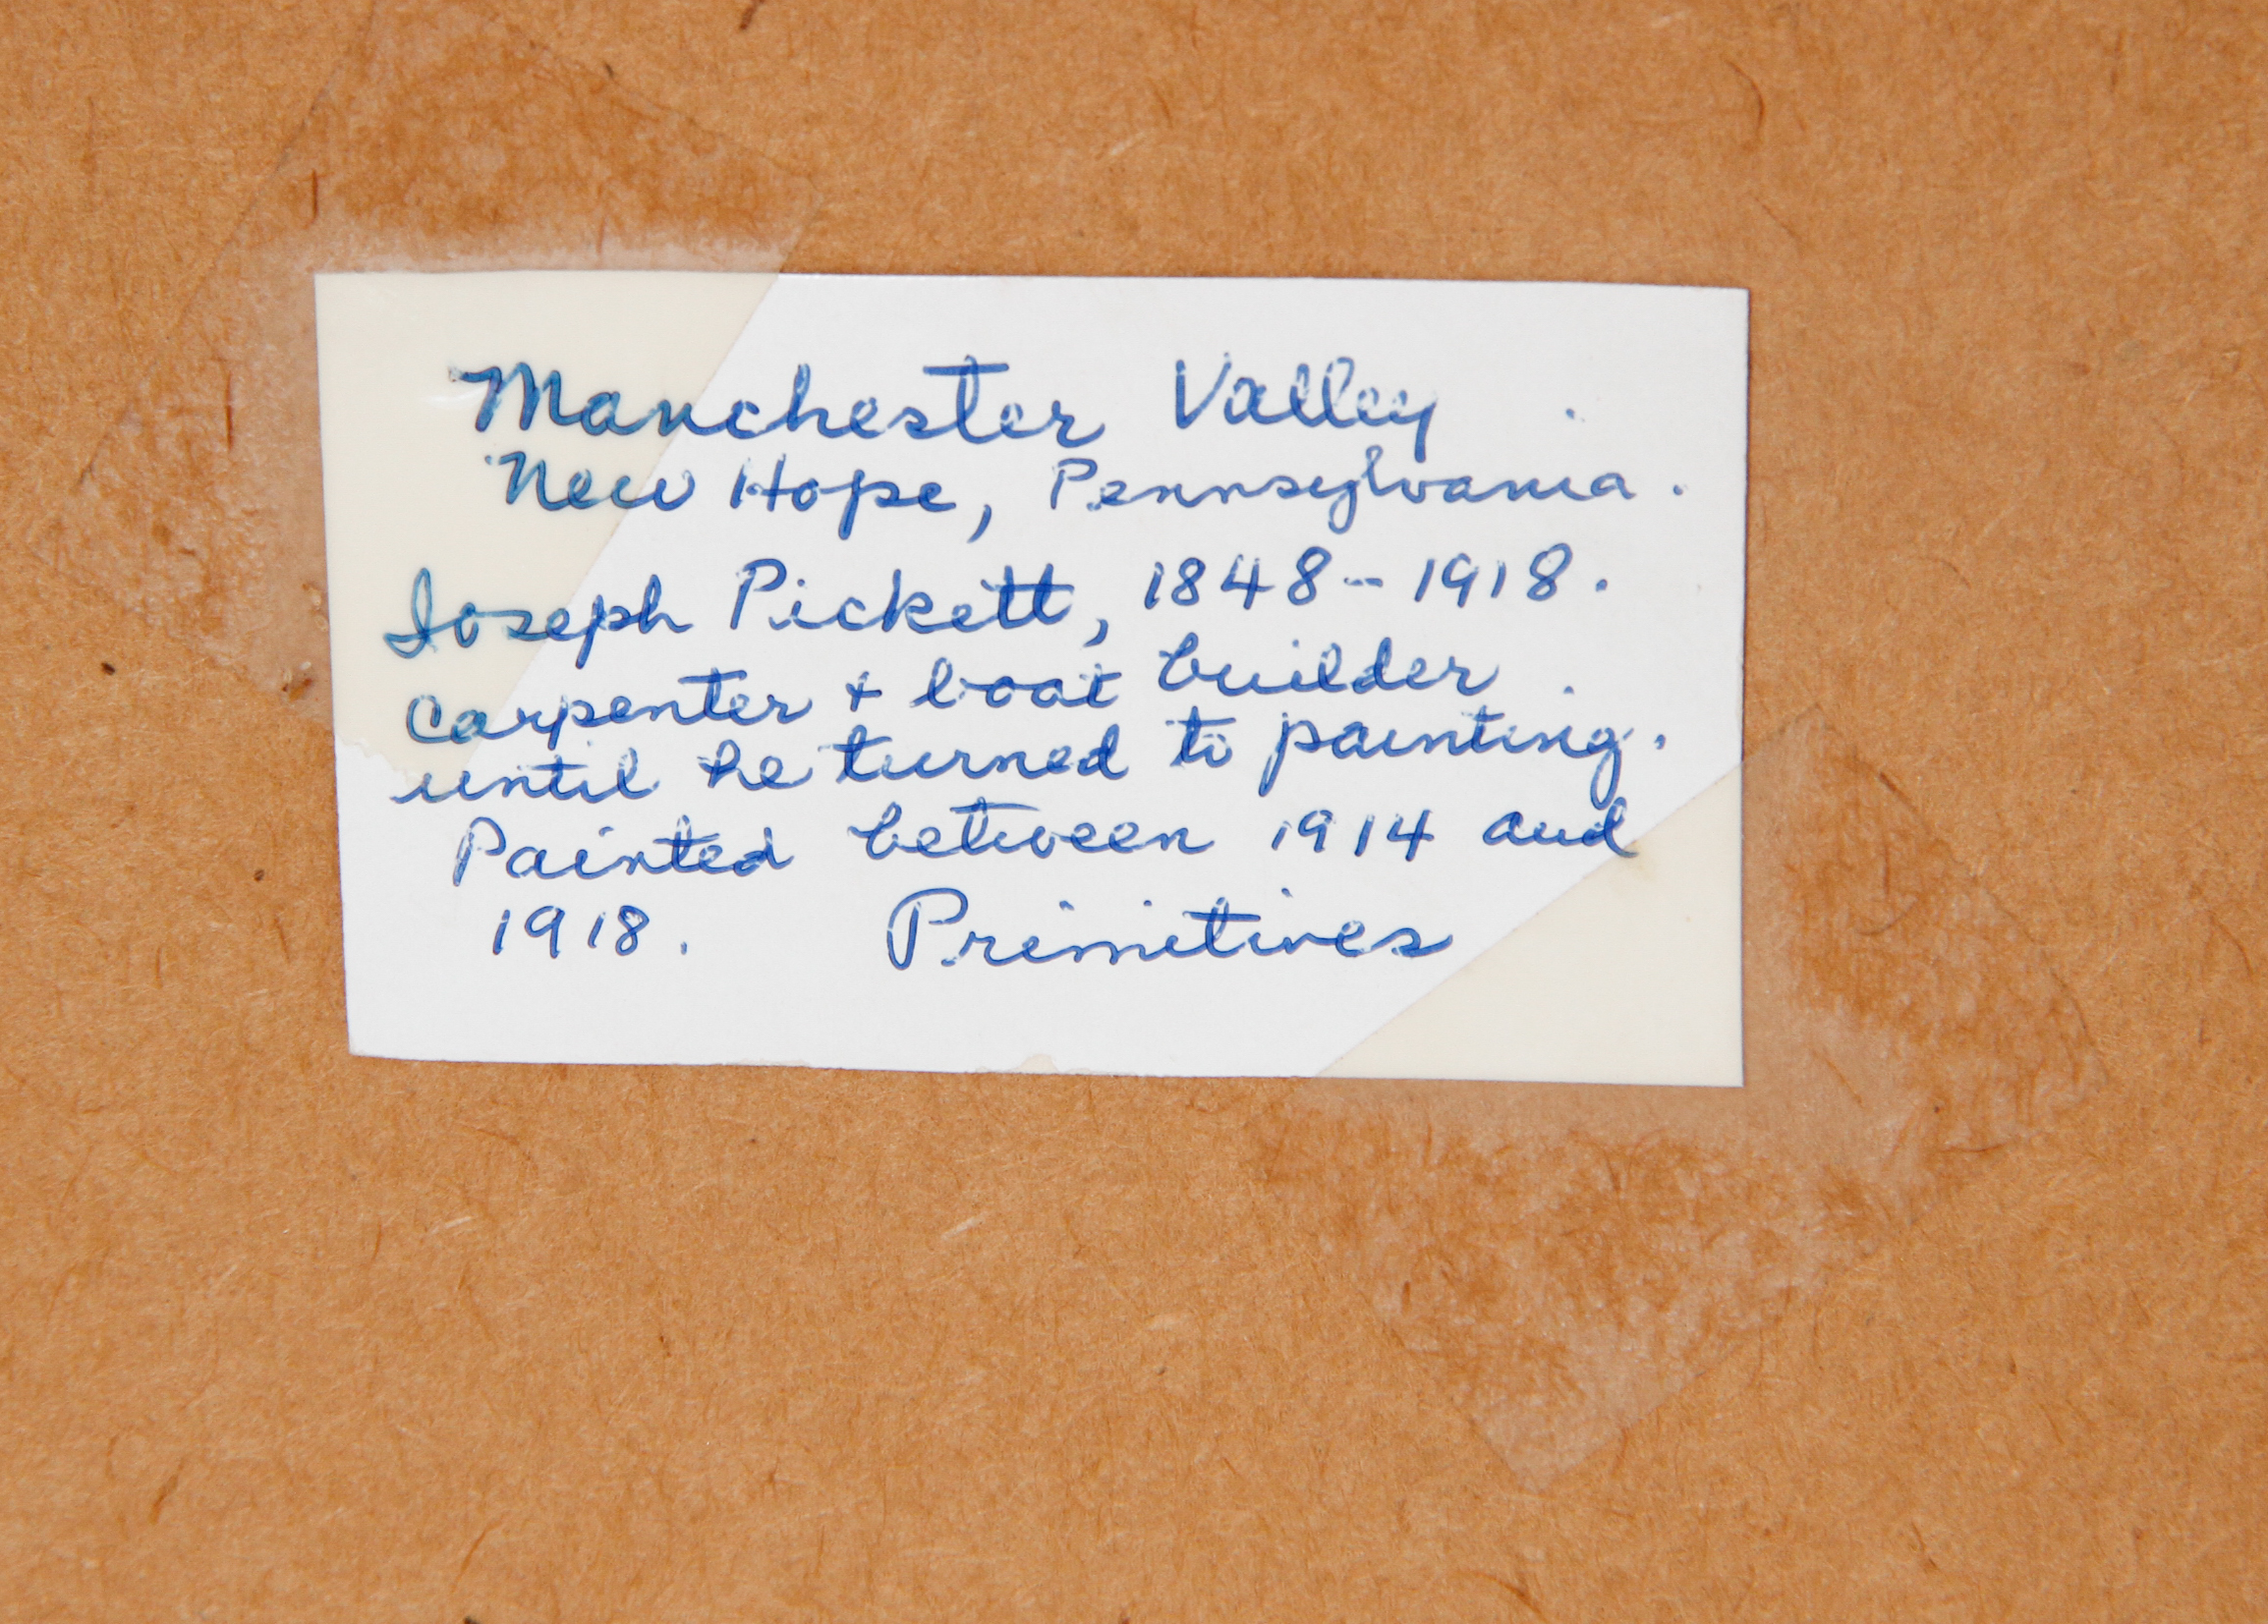 Manchester Valley
New Hope, Pennsylvania.
Joseph Pickett, 1848-1918.
Carpenter + boat builder
until he turned to painting.
Painted between 1914 and
1918. Primitives